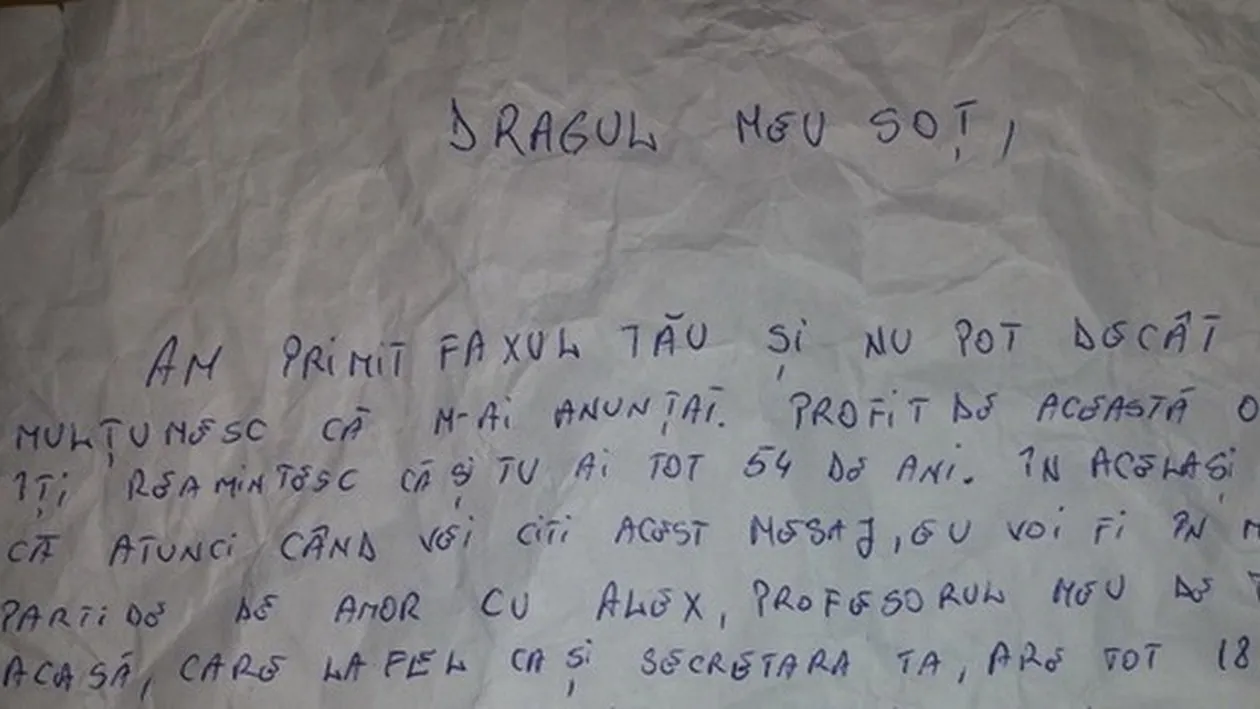 DRAGUL MEU SOȚ,
AM PRIMIT FAXUL TĂU ȘI NU POT DECÂT
MULȚUMESC CĂ M-AI ANUNȚAT. PROFIT DE ACEASTĂ O
ÎȚI REAMINTESC CĂ ȘI TU AI TOT 54 DE ANI. ÎN ACELAȘI
CĂ ATUNCI CÂND VEI CITI ACEST MESAJ, EU VOI FI ÎN
PARTIDE DE AMOR CU ALEX, PROFESORUL MEU DE T
ACASĂ, CARE LA FEL CA ȘI SECRETARA TA, ARE TOT 18